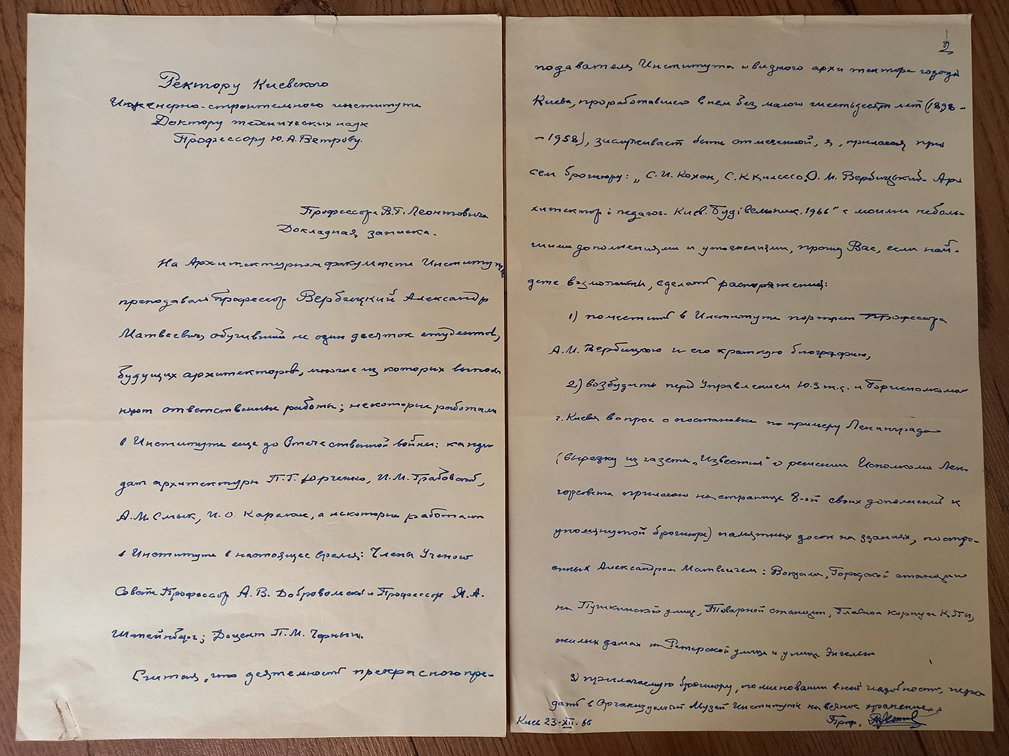 Ректору Киевского
Инженерно-строительного института
Доктору технических наук
Профессору Ю.А. Ветрову.
Профессора В.Г. Леонтовича
Докладная записка.
На Архитектурном факультете Института
преподавал Профессор Вербицкий Александр
Матвеевич, обучивший не один десяток студентов,
будущих архитекторов, многие из которых выпол
няют ответственные работы; некоторые работали
в Институте еще до Отечественной войны: канди
дат архитектуры П.Г. Юрченко, И.М. Грабовский,
А.М. Смык, И.О. Каракис, а некоторые работают
в Институте в настоящее время: Члены Ученого
Совета Профессор А.В. Добровольский и Профессор Я.А.
Штейнберг; Доцент П.М.
Считая, что деятельность прекрасного пре-
2
подавателя Института и видного архитектора города
Киева, проработавшего в нем без малого шестьдесят лет (1898 -
- 1958), заслуживает быть отмеченной, я, прилагая при
сем брошюру: „С.И. Кохан, С.К. Килессо, О.М. Вербицький - Ар
хитектор і педагог. Киев. Будівельник. 1966" с моими неболь-
шими дополнениями и уточнениями, прошу Вас, если най-
дете возможным, сделать распоряжение:
1) поместить в Институте портрет Профессора
А.М. Вербицкого и его краткую биографию,
2) возбудить перед Управлением Ю.З.ж.д. и Горисполкомом
г. Киева вопрос о постановке по примеру Ленинграда
(вырезку из газеты „Известия" о решении Исполкома Лен
горсовета прилагаю на странице 8-ой своих дополнений к
упомянутой брошюре) памятных досок на зданиях, постро-
енных Александром Матвеевичем: Вокзала, Городской станции
на Пушкинской улице, Товарной станции, Главном корпусе КПИ,
жилых домах на Рейтерской улице и улице Энгельса
3) прилагаемую брошюру, по миновании в ней надобности, пере
дать в Организуемый Музей Института на вечное хранение.
Киев 23-XII.66
Проф.